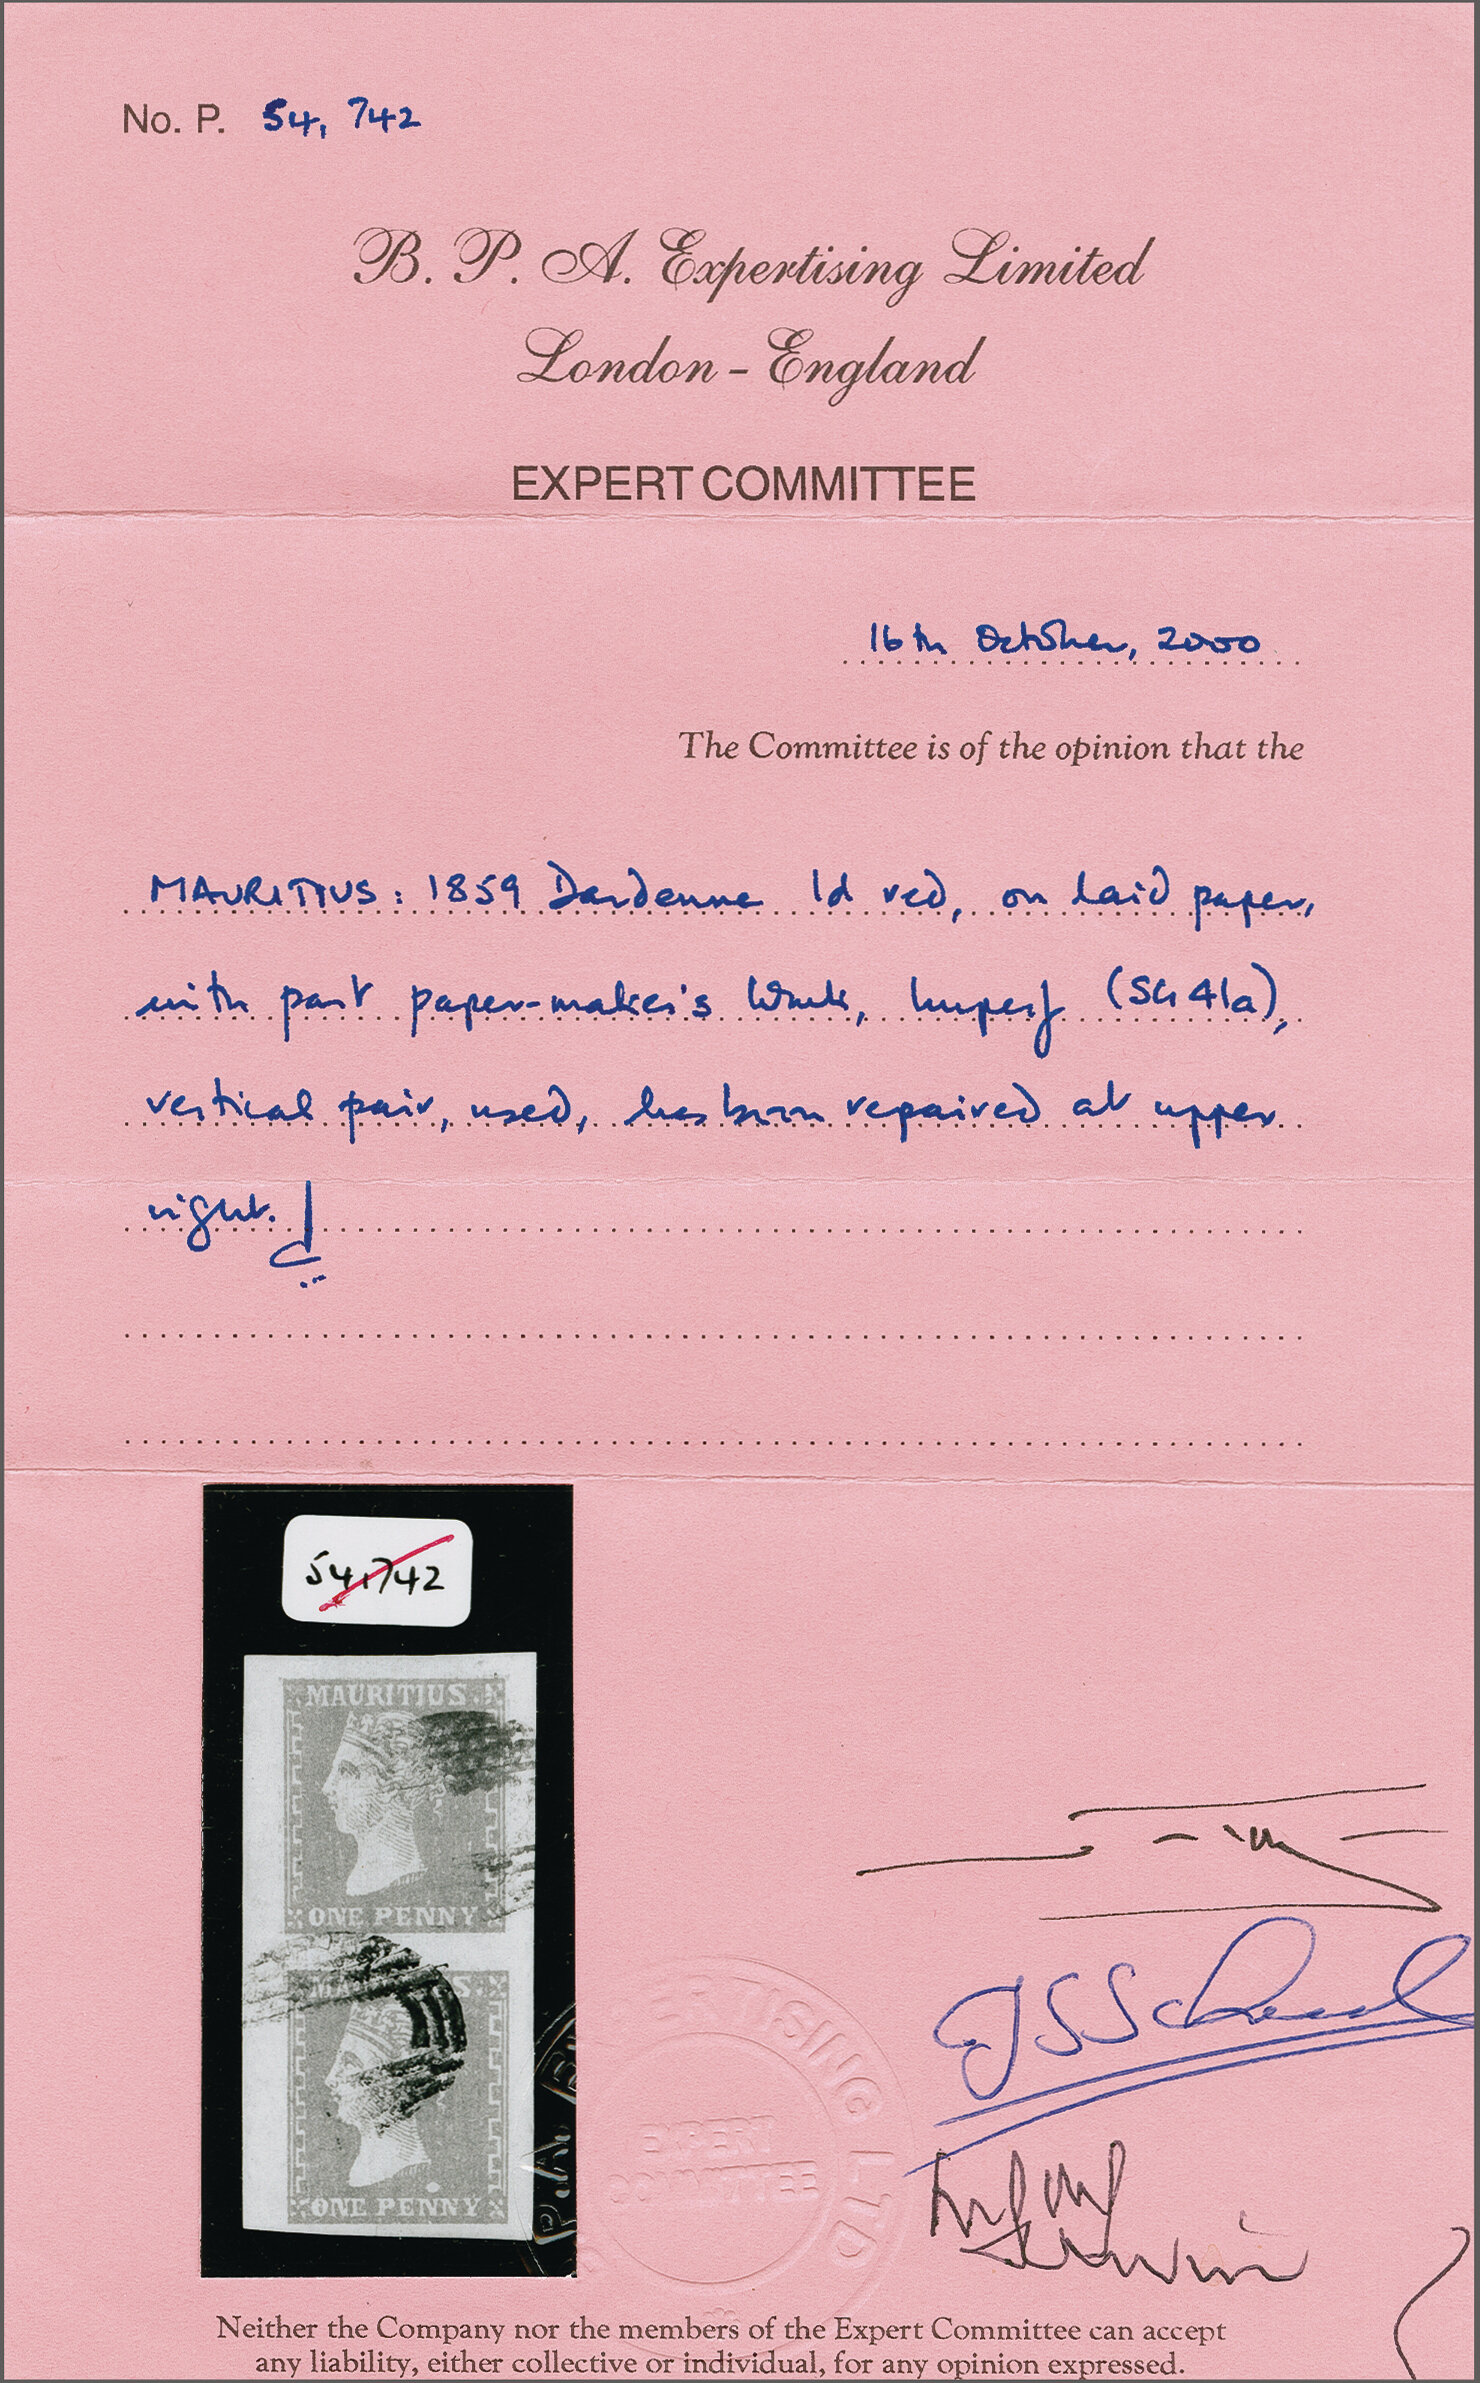 No. P. 54,742
B. P. A. Expertising Limited
London - England
EXPERT COMMITTEE
16th October, 2000
The Committee is of the opinion that the
MAURITIUS: 1859 Dardenne 1d red, on laid paper,
with part paper-maker's Wmk, Imperf (SG 41a),
vertical pair, used, has been repaired at upper
right.
54,742
MAURITIUS
ONE PENNY
MAURITIUS
ONE PENNY
EXPERT
COMMITTEE
Neither the Company nor the members of the Expert Committee can accept
any liability, either collective or individual, for any opinion expressed.